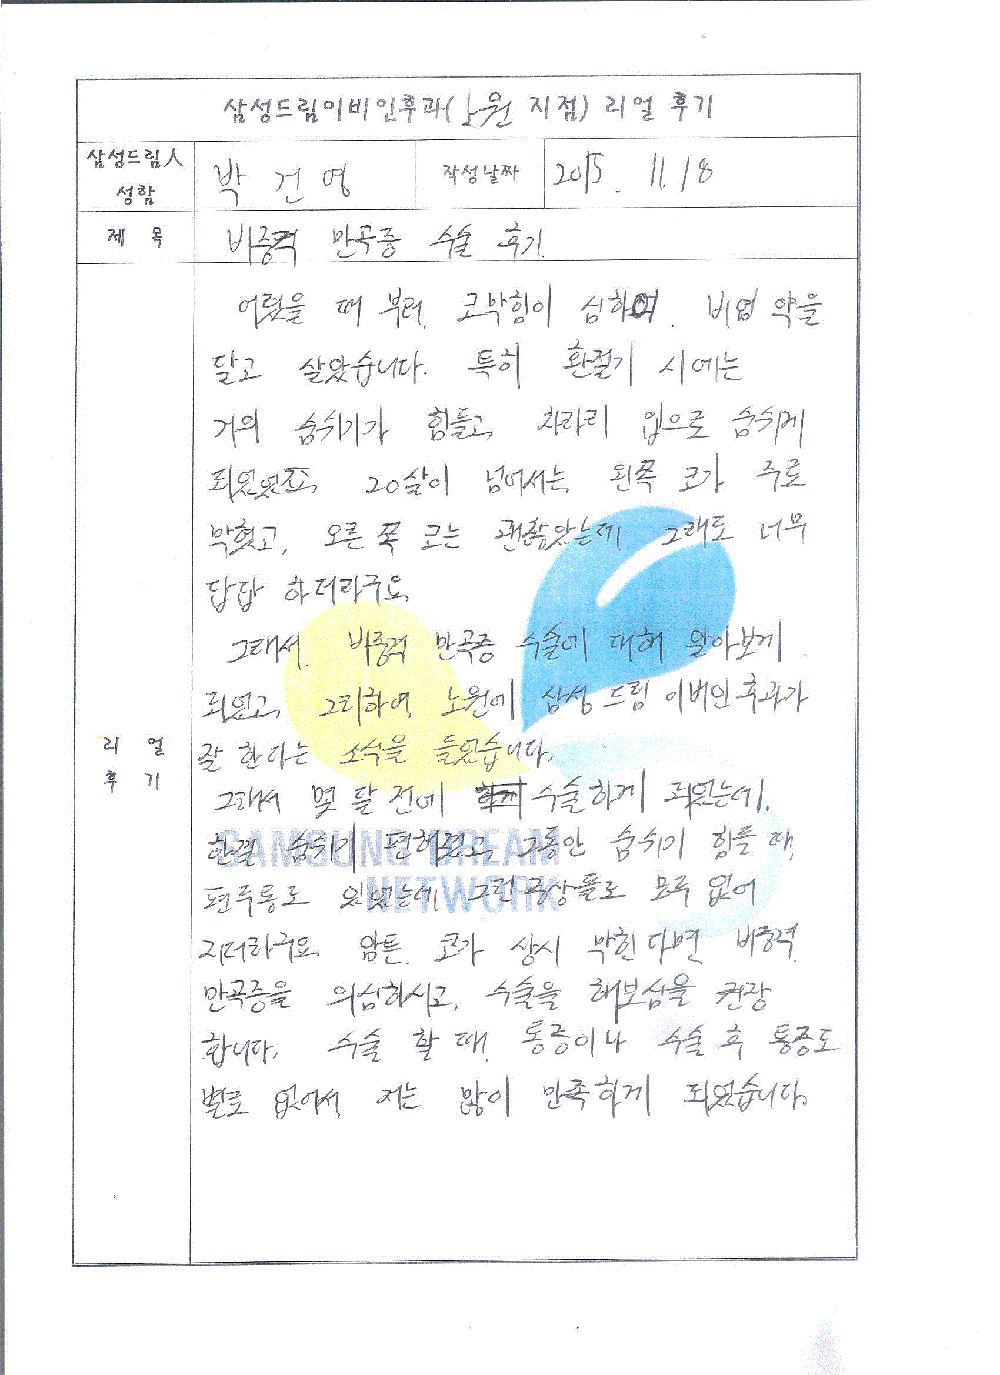 삼성드림이비인후과(노원 지점) 리얼 후기
삼성드림人 성함
박건영
작성날짜
2015. 11.18
제 목
비중격 만곡증 수술 후기.
리 얼 후 기
어렸을 때 부터, 코막힘이 심하여, 비염 약을
달고 살았습니다. 특히 환절기 시에는
거의 숨쉬기가 힘들고, 차라리 입으로 숨쉬게
되었었죠. 20살이 넘어서는, 왼쪽 코가 주로
막혔고, 오른 쪽 코는 괜찮았는데, 그래도 너무
답답 하더라구요.
그래서, 비중격 만곡증 수술에 대해 알아보게
되었고, 그리하여, 노원에 삼성 드림 이비인후과가
잘 한다는 소식을 들었습니다.
그래서 몇 달 전에 수술하게 되었는데,
한결 숨쉬기 편해졌고, 그동안 숨쉬기 힘들 때,
편두통도 있었는데, 그런증상들도 모두 없어
지더라구요. 암튼, 코가 상시 막힌다면, 비중격
만곡증을 의심하시고, 수술을 해보심을 권장
합니다. 수술 할 때, 통증이나 수술 후 통증도
별로 없어서, 저는 많이 만족하게 되었습니다.
SAMSUNG DREAM
NETWORK